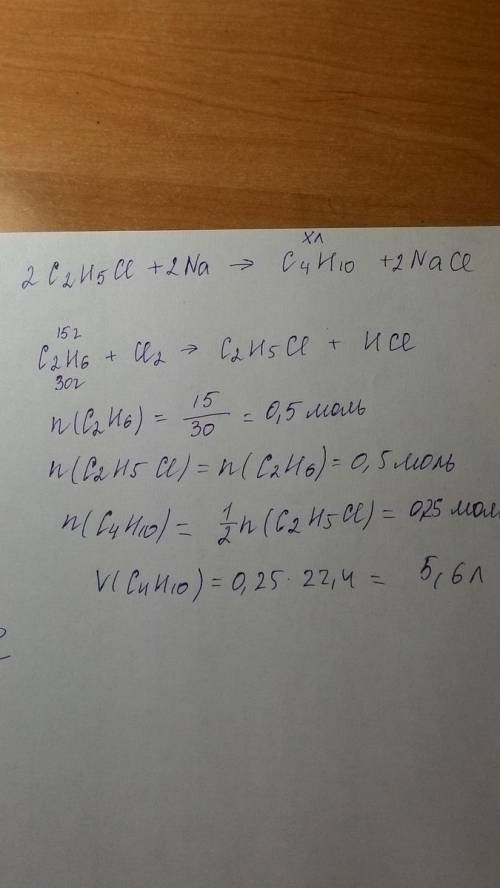 хл
2 C2H5Cl + 2Na → C4H10 + 2NaCl
15г
C2H6 + Cl2 → C2H5Cl + HCl
30г
n(C2H6) = 15/30 = 0,5 моль
n(C2H5Cl) = n(C2H6) = 0,5 моль
n(C4H10) = 1/2 n(C2H5Cl) = 0,25 мол
V(C4H10) = 0,25 · 22,4 = 5,6 л